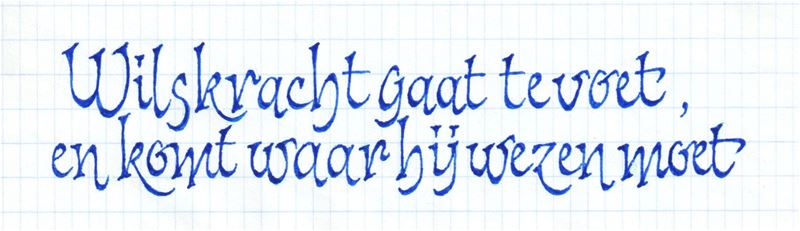 Wilskracht gaat te voet,
en komt waar hij wezen moet